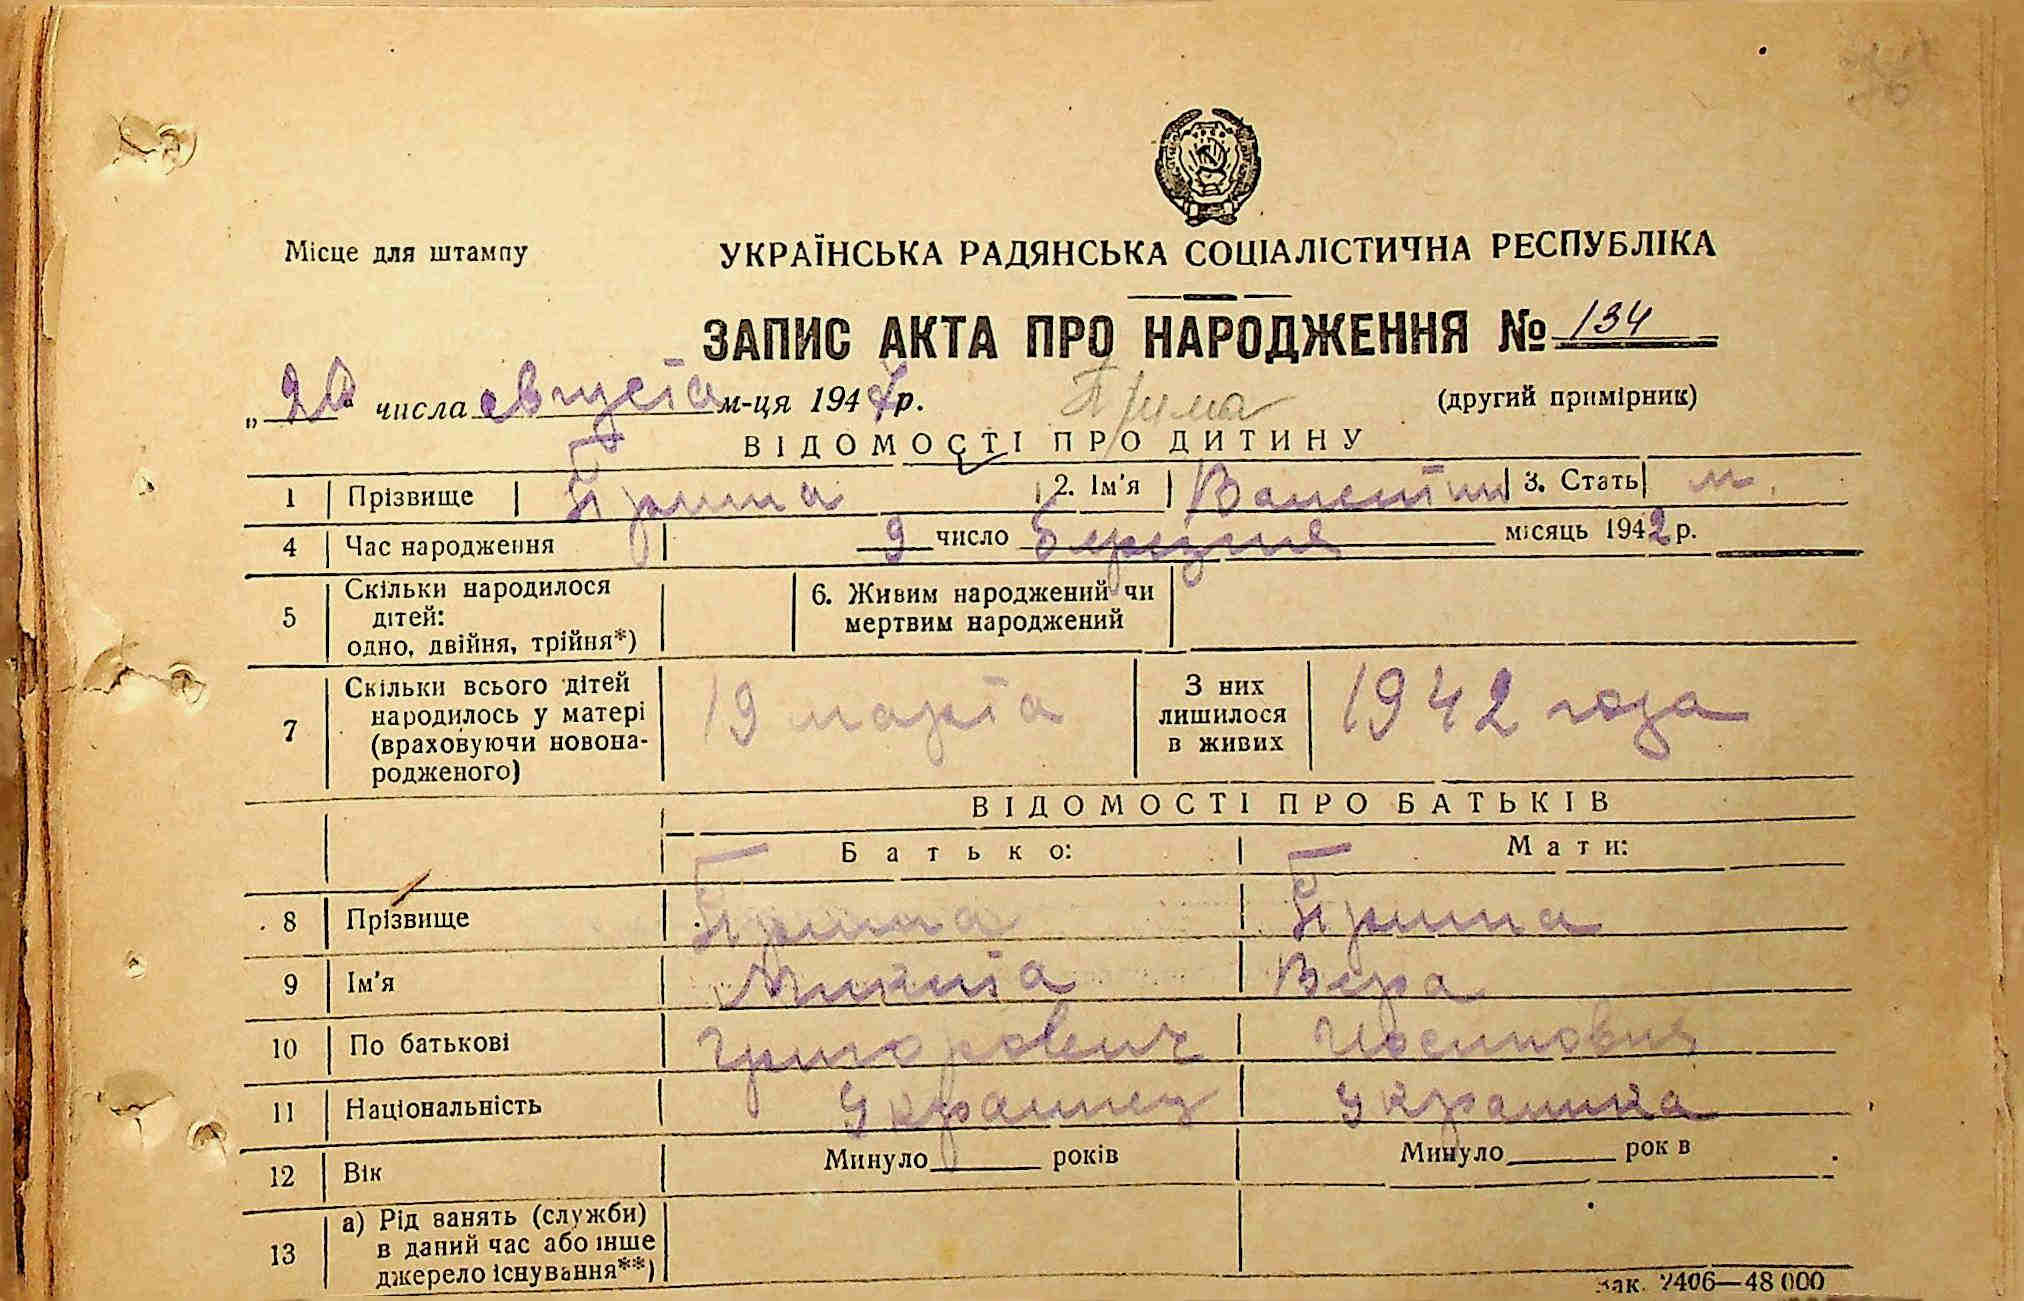 Місце для штампу
УКРАЇНСЬКА РАДЯНСЬКА СОЦІАЛІСТИЧНА РЕСПУБЛІКА
ЗАПИС АКТА ПРО НАРОДЖЕННЯ № 134
„20“ числа августа м-ця 1947 р. (другий примірник)
ВІДОМОСТІ ПРО ДИТИНУ
1 Прізвище 2. Ім'я Валентин 3. Стать м.
4 Час народження 9 число березня місяць 1942 р.
5 Скільки народилося дітей: одно, двійня, трійня*) 6. Живим народжений чи мертвим народжений
7 Скільки всього дітей народилось у матері (враховуючи новонародженого) 19 марта З них лишилося в живих 1942 года
ВІДОМОСТІ ПРО БАТЬКІВ
Батько: Мати:
8 Прізвище
9 Ім'я Микита Вера
10 По батькові Григорович Иосиповна
11 Національність Украинец Украинка
12 Вік Минуло років Минуло рок в
13 а) Рід занять (служби) в даний час або інше джерело існування**)
Зак. 2406—48 000